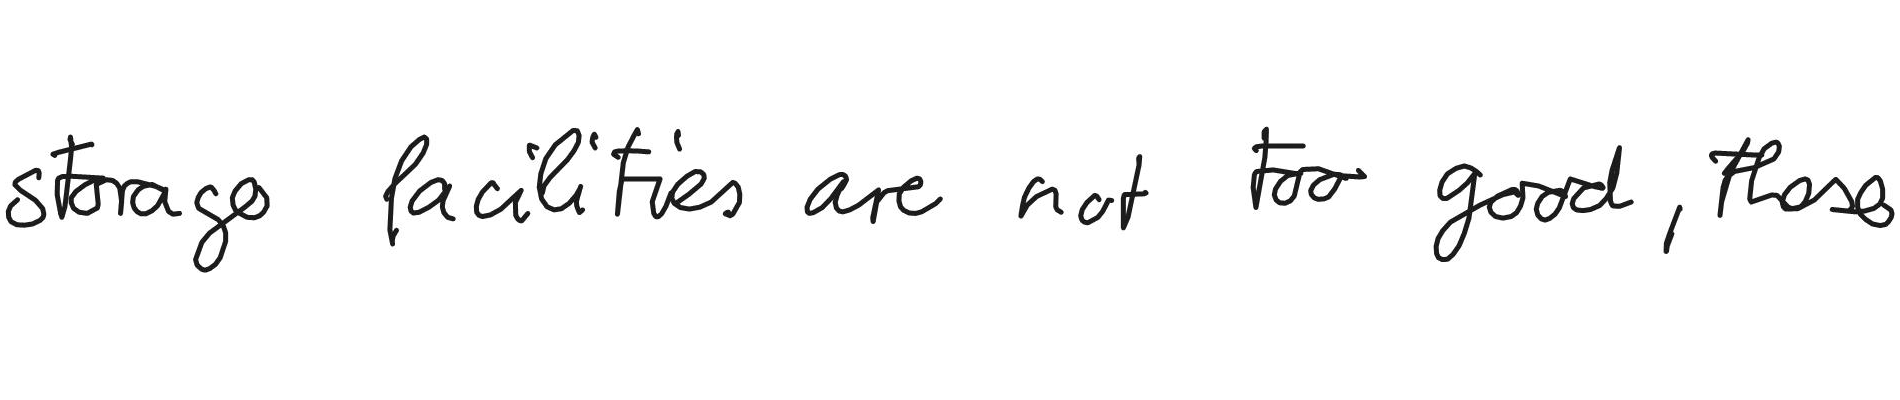 storage facilities are not too good, those